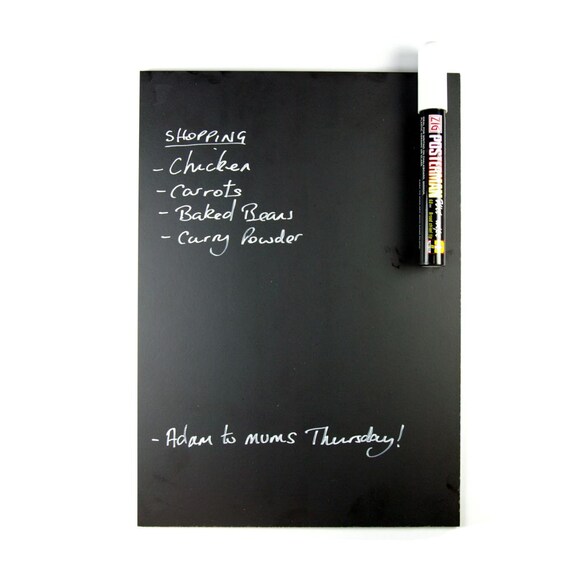 SHOPPING
- Chicken
- Carrots
- Baked Beans
- Curry Powder
- Adam to mums Thursday!
Zig POSTERMAN